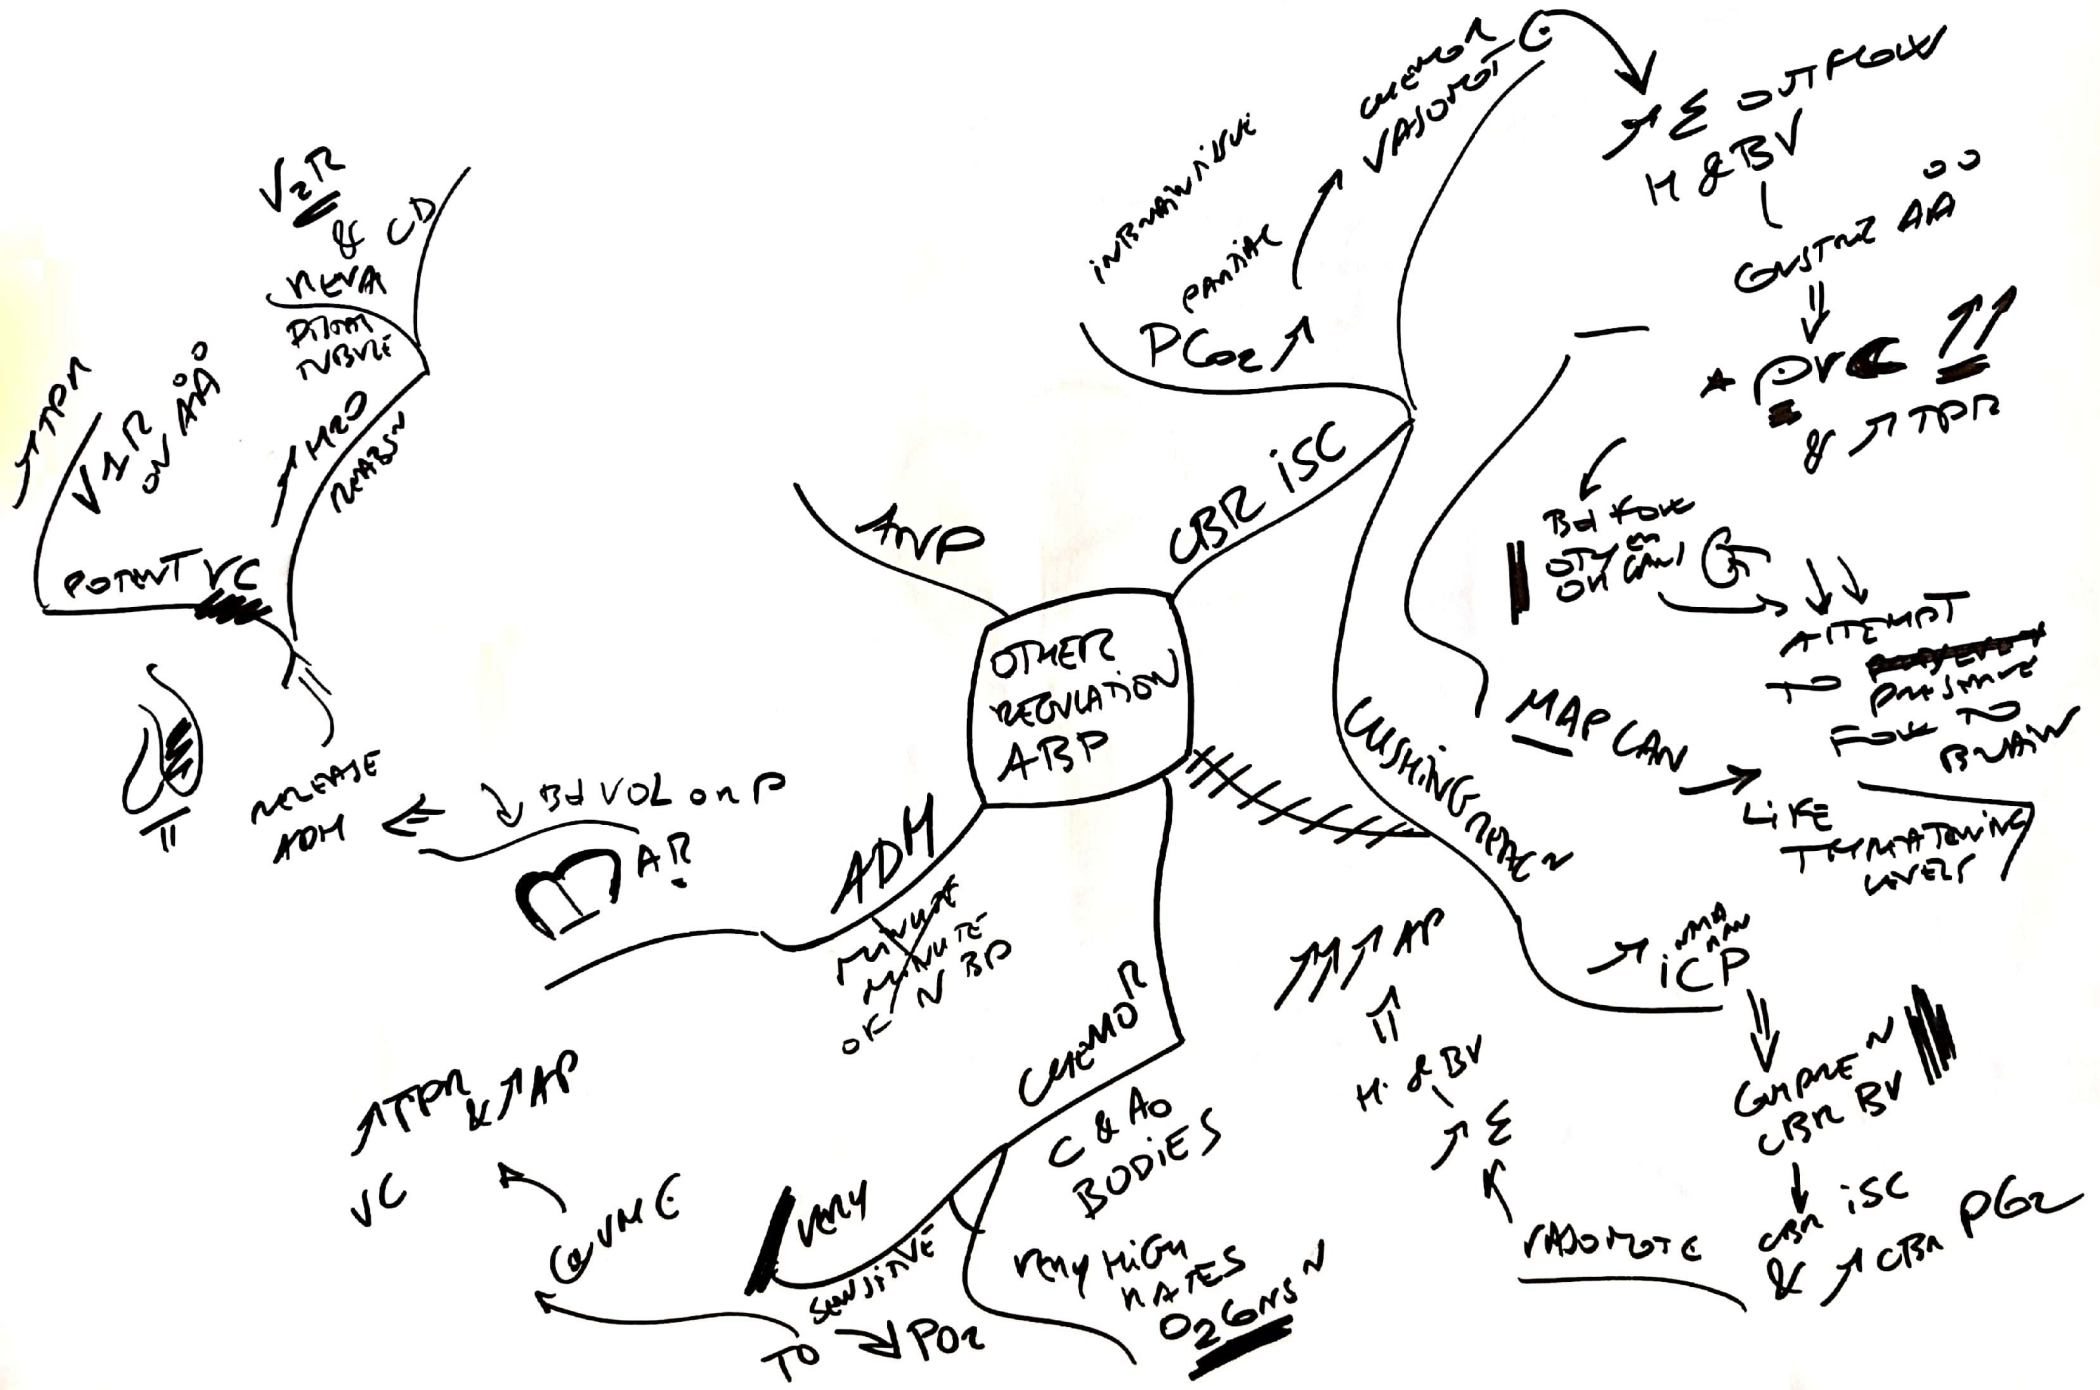 OTHER
REGULATION
ABP
ANP
CBR ISC
PCO2 ↗
PARTIAL
IN BRAIN TISSUE
CHEMOR
VASOMOT C
↗ Σ OUTFLOW
H & BV
CONSTRI AA
⇓
PVC ↑↑
& ↗ TPR
Bd FLOW
OTH
ORGANS
↓↓
ATTEMPT
TO
PRESERVE
FLOW TO
BRAIN
MAP CAN
→
LIFE
THREATENING
LEVELS
CUSHING REAC N
↗ ICP
INTRA
CRAN
⇓
COMPRE N
CBR BV
↓
CBR ISC
& ↗ CBR PCO2
VASOMOT C
↗ Σ
H & BV
⇑
↗↗↗ AP
CHEMO R
C & AO
BODIES
VERY HIGH
RATES
O2 CONS N
VERY
SENSITIVE
TO ↘ PO2
@ VM C
VC
↗ TPR & ↗ AP
ADH
MINUTE
MINUTE
OK N BP
BAR
↘ Bd VOL OR P
RELEASE
ADH
II
POTENT VC
V1R
ON AA
↗ TPR
↗ H2O
REABS N
RENAL
DISTAL
TUBULE
& CD
V2R